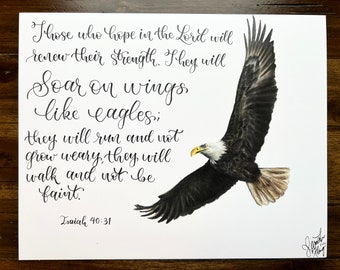 Those who hope in the Lord will
renew their strength. They will
Soar on wings
like eagles;
they will run and not
grow weary, they will
walk and not be
faint.
Isaiah 40:31